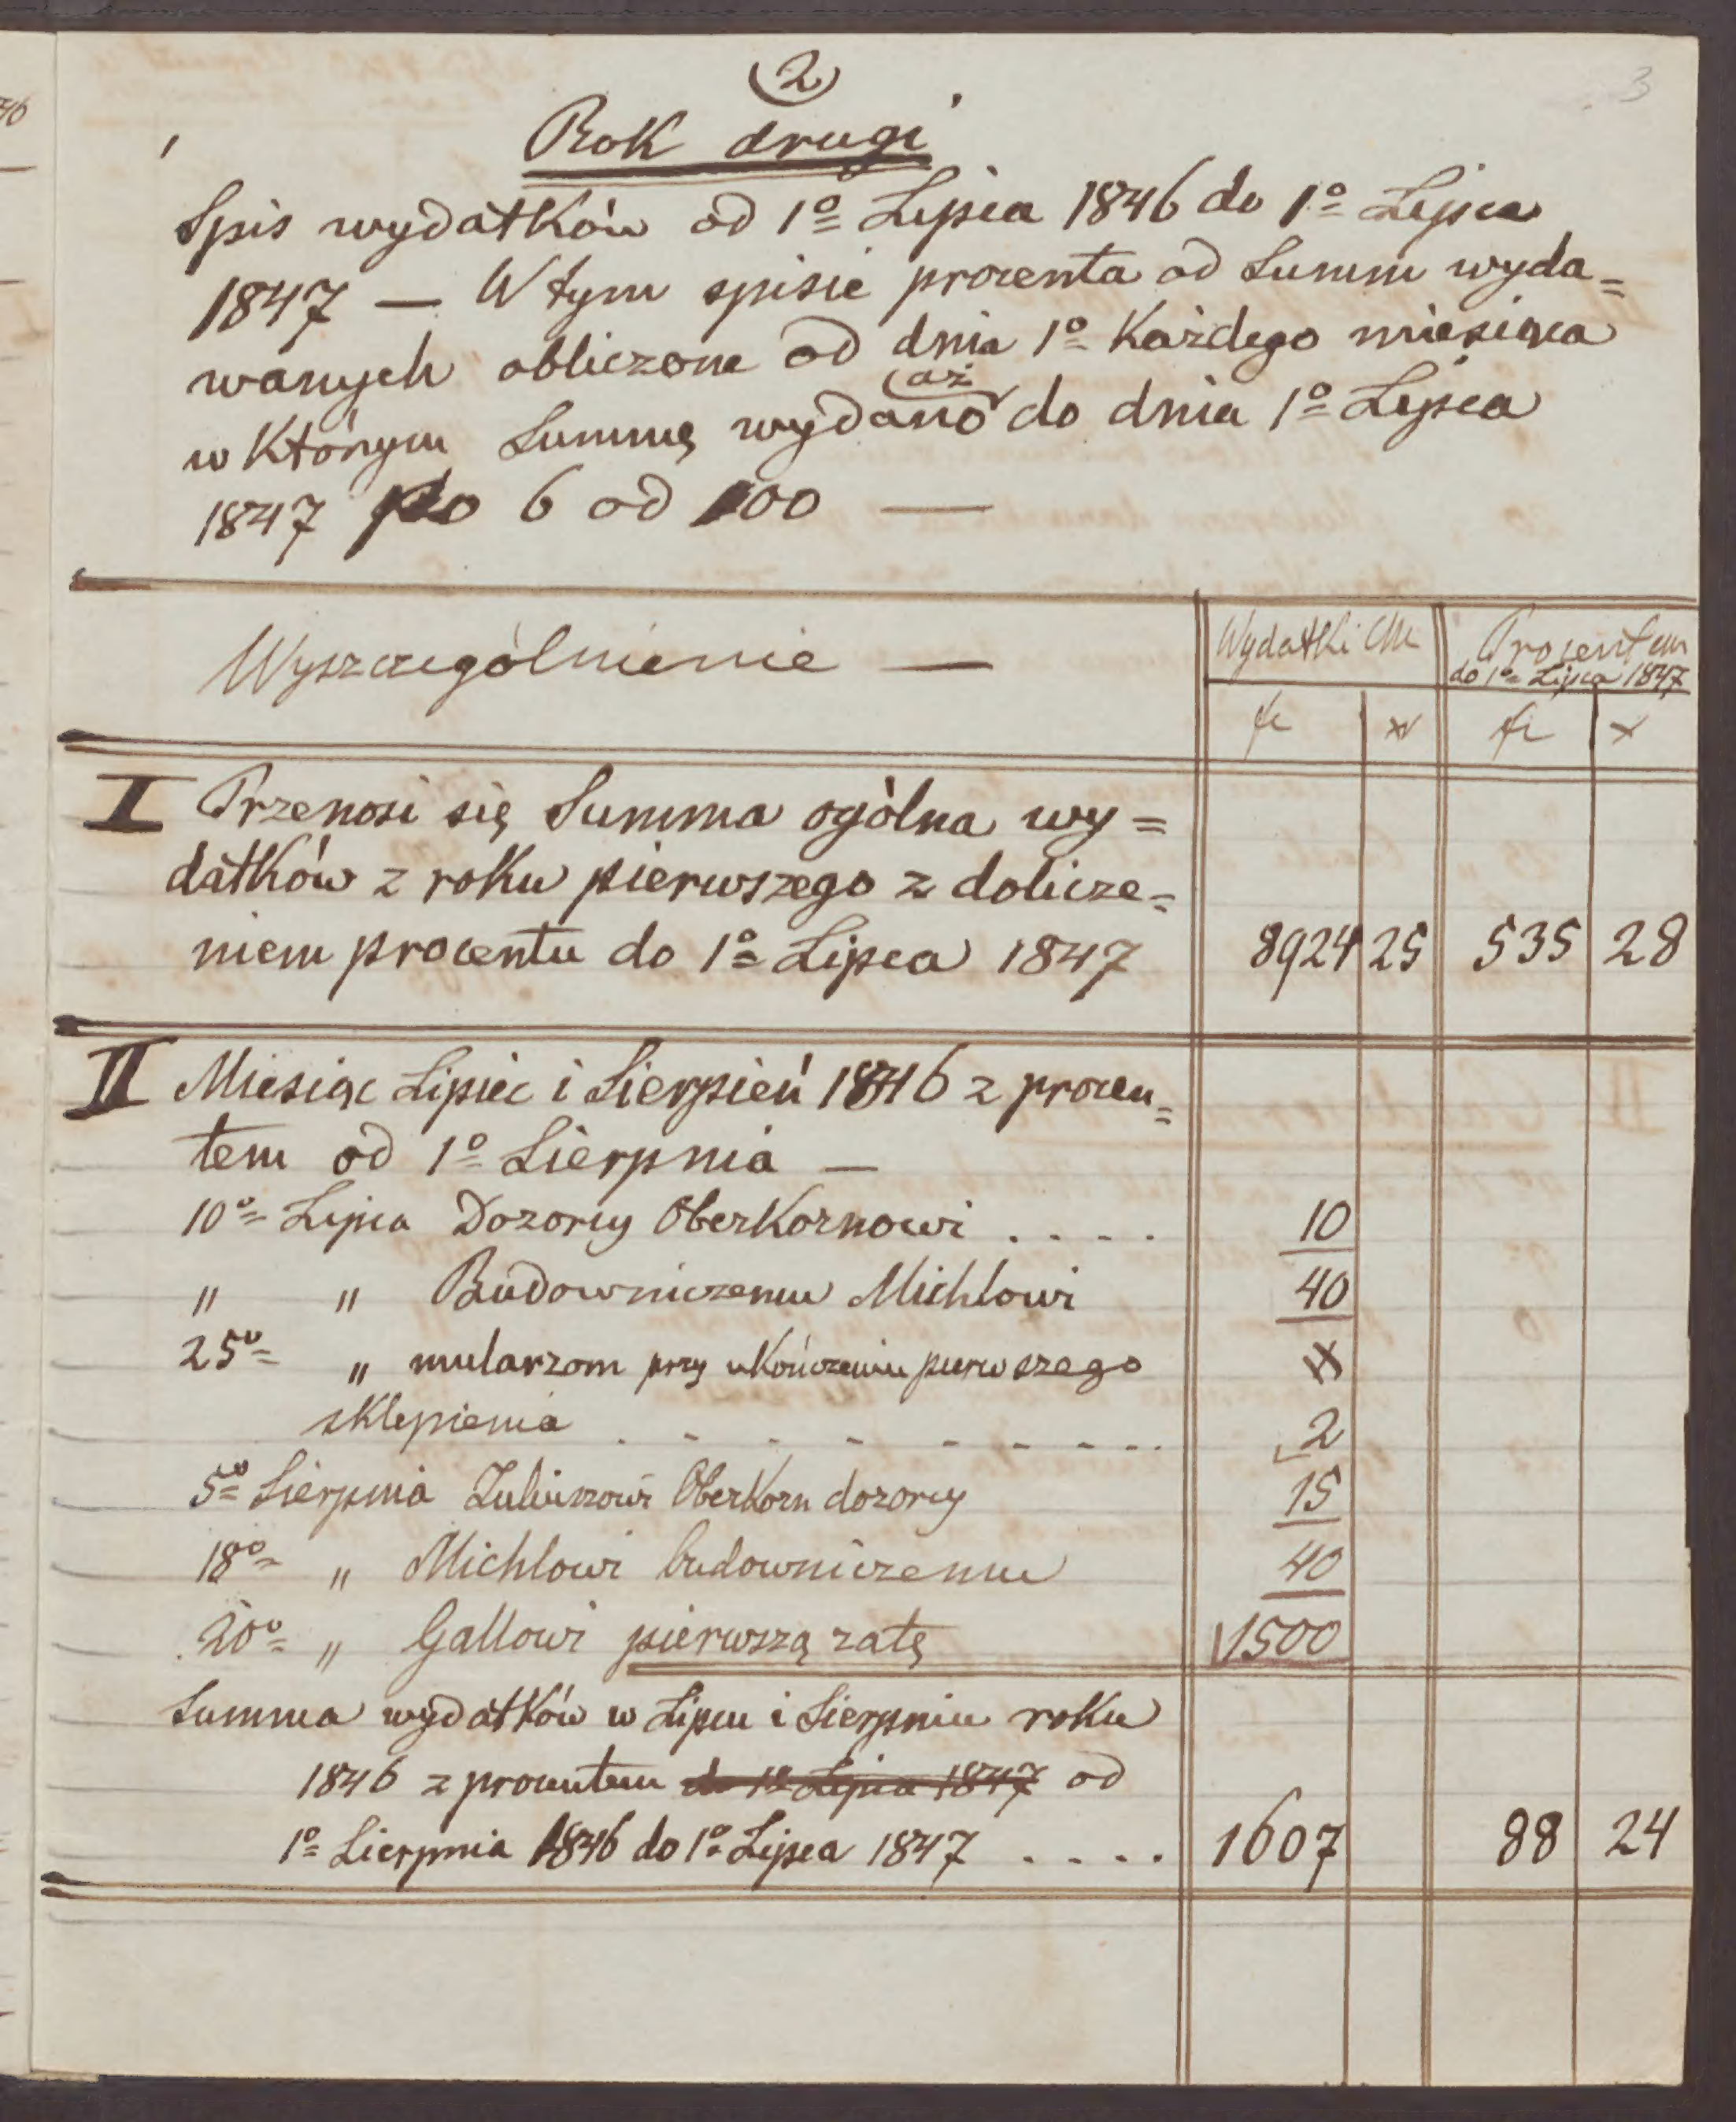 2
3
Rok drugi
Spis wydatków od 1º Lipca 1846 do 1º Lipca
1847 — W tym spisie procenta od Summ wyda=
wanych obliczone od dnia 1º Każdego miesiąca
w Którym Summę wydano aż do dnia 1º Lipca
1847 po 6 od 100 —
Wyszczególnienie — Wydatki CM Procentem
do 1º Lipca 1847
fr x fr x
I Przenosi się Summa ogólna wy=
datków z roku pierwszego z dolicze=
niem procentu do 1º Lipca 1847 8924 25 535 28
II Miesiąc Lipiec i Sierpień 1846 z procen=
tem od 1º Sierpnia —
10º Lipca Dozorcy Oberkornowi . . . . 10
" " Budowniczemu Michlowi 40
25º " mularzom przy ukończeniu pierwszego
sklepienia . . . . . . . . . 2
5º Sierpnia Oberkorn dozorcy 15
18º " Michlowi budowniczemu 40
20º " Gallowi pierwszą ratę 1500
Summa wydatków w Lipcu i Sierpniu roku
1846 z procentem do 1º Lipca 1847 od
1º Sierpnia 1846 do 1º Lipca 1847 . . . . 1607 88 24